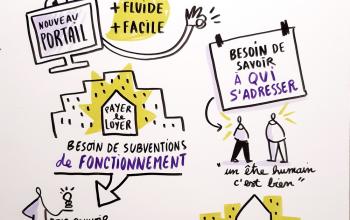 NOUVEAU
PORTAIL
+ FLUIDE
+ FACILE
BESOIN DE
SAVOIR
À QUI
S'ADRESSER
PAYER
le
LOYER
BESOIN DE SUBVENTIONS
de FONCTIONNEMENT
"un être humain
c'est bien"